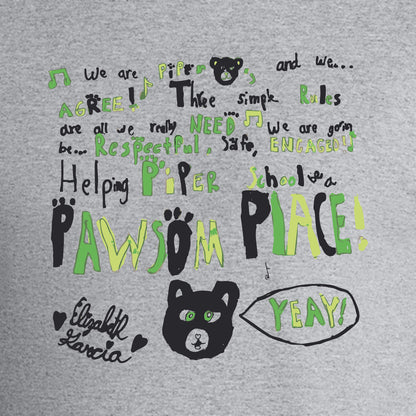 We are PiPER and we...
AGREE! Three simple Rules
are all we really NEED.... We are goin
be... Respectful, Safe, ENGAGED!
Helping PiPER School be a
PAWSOM PlACE!
YEAY!
Elizabeth
Garcia